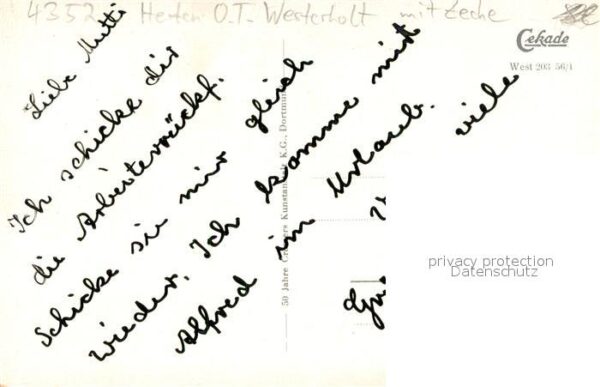 4352 Herten O.T. Westerholt mit Zeche
Cekade
West 203 56/1
Liebe Mutti
Ich schicke dir
die Arbeiterrückf.
schicke sie mir gleich
wieder. Ich komme mit
Alfred im Urlaub.
viele
50 Jahre Cramers Kunstanstalt K.G., Dortmund
privacy protection
Datenschutz